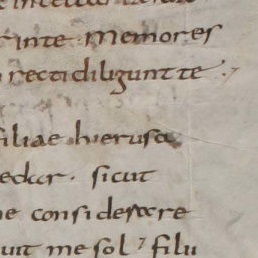 r in te · memores
recti diligunt te ·
filiae hierusa
cedar · sicut
e considerare
uit me sol ⁊ filii